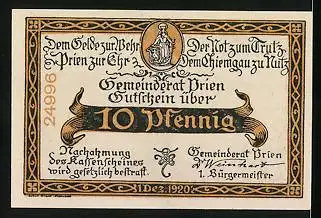 Dem Gelde zur Wehr Der Not zum Trutz
Prien zur Ehr Dem Chiemgau zu Nutz
24996
Gemeinderat Prien
Gutschein über
10 Pfennig
Nachahmung
des Kassenscheines
wird gesetzlich bestraft.
Gemeinderat Prien
1. Bürgermeister
1 Dez. 1920